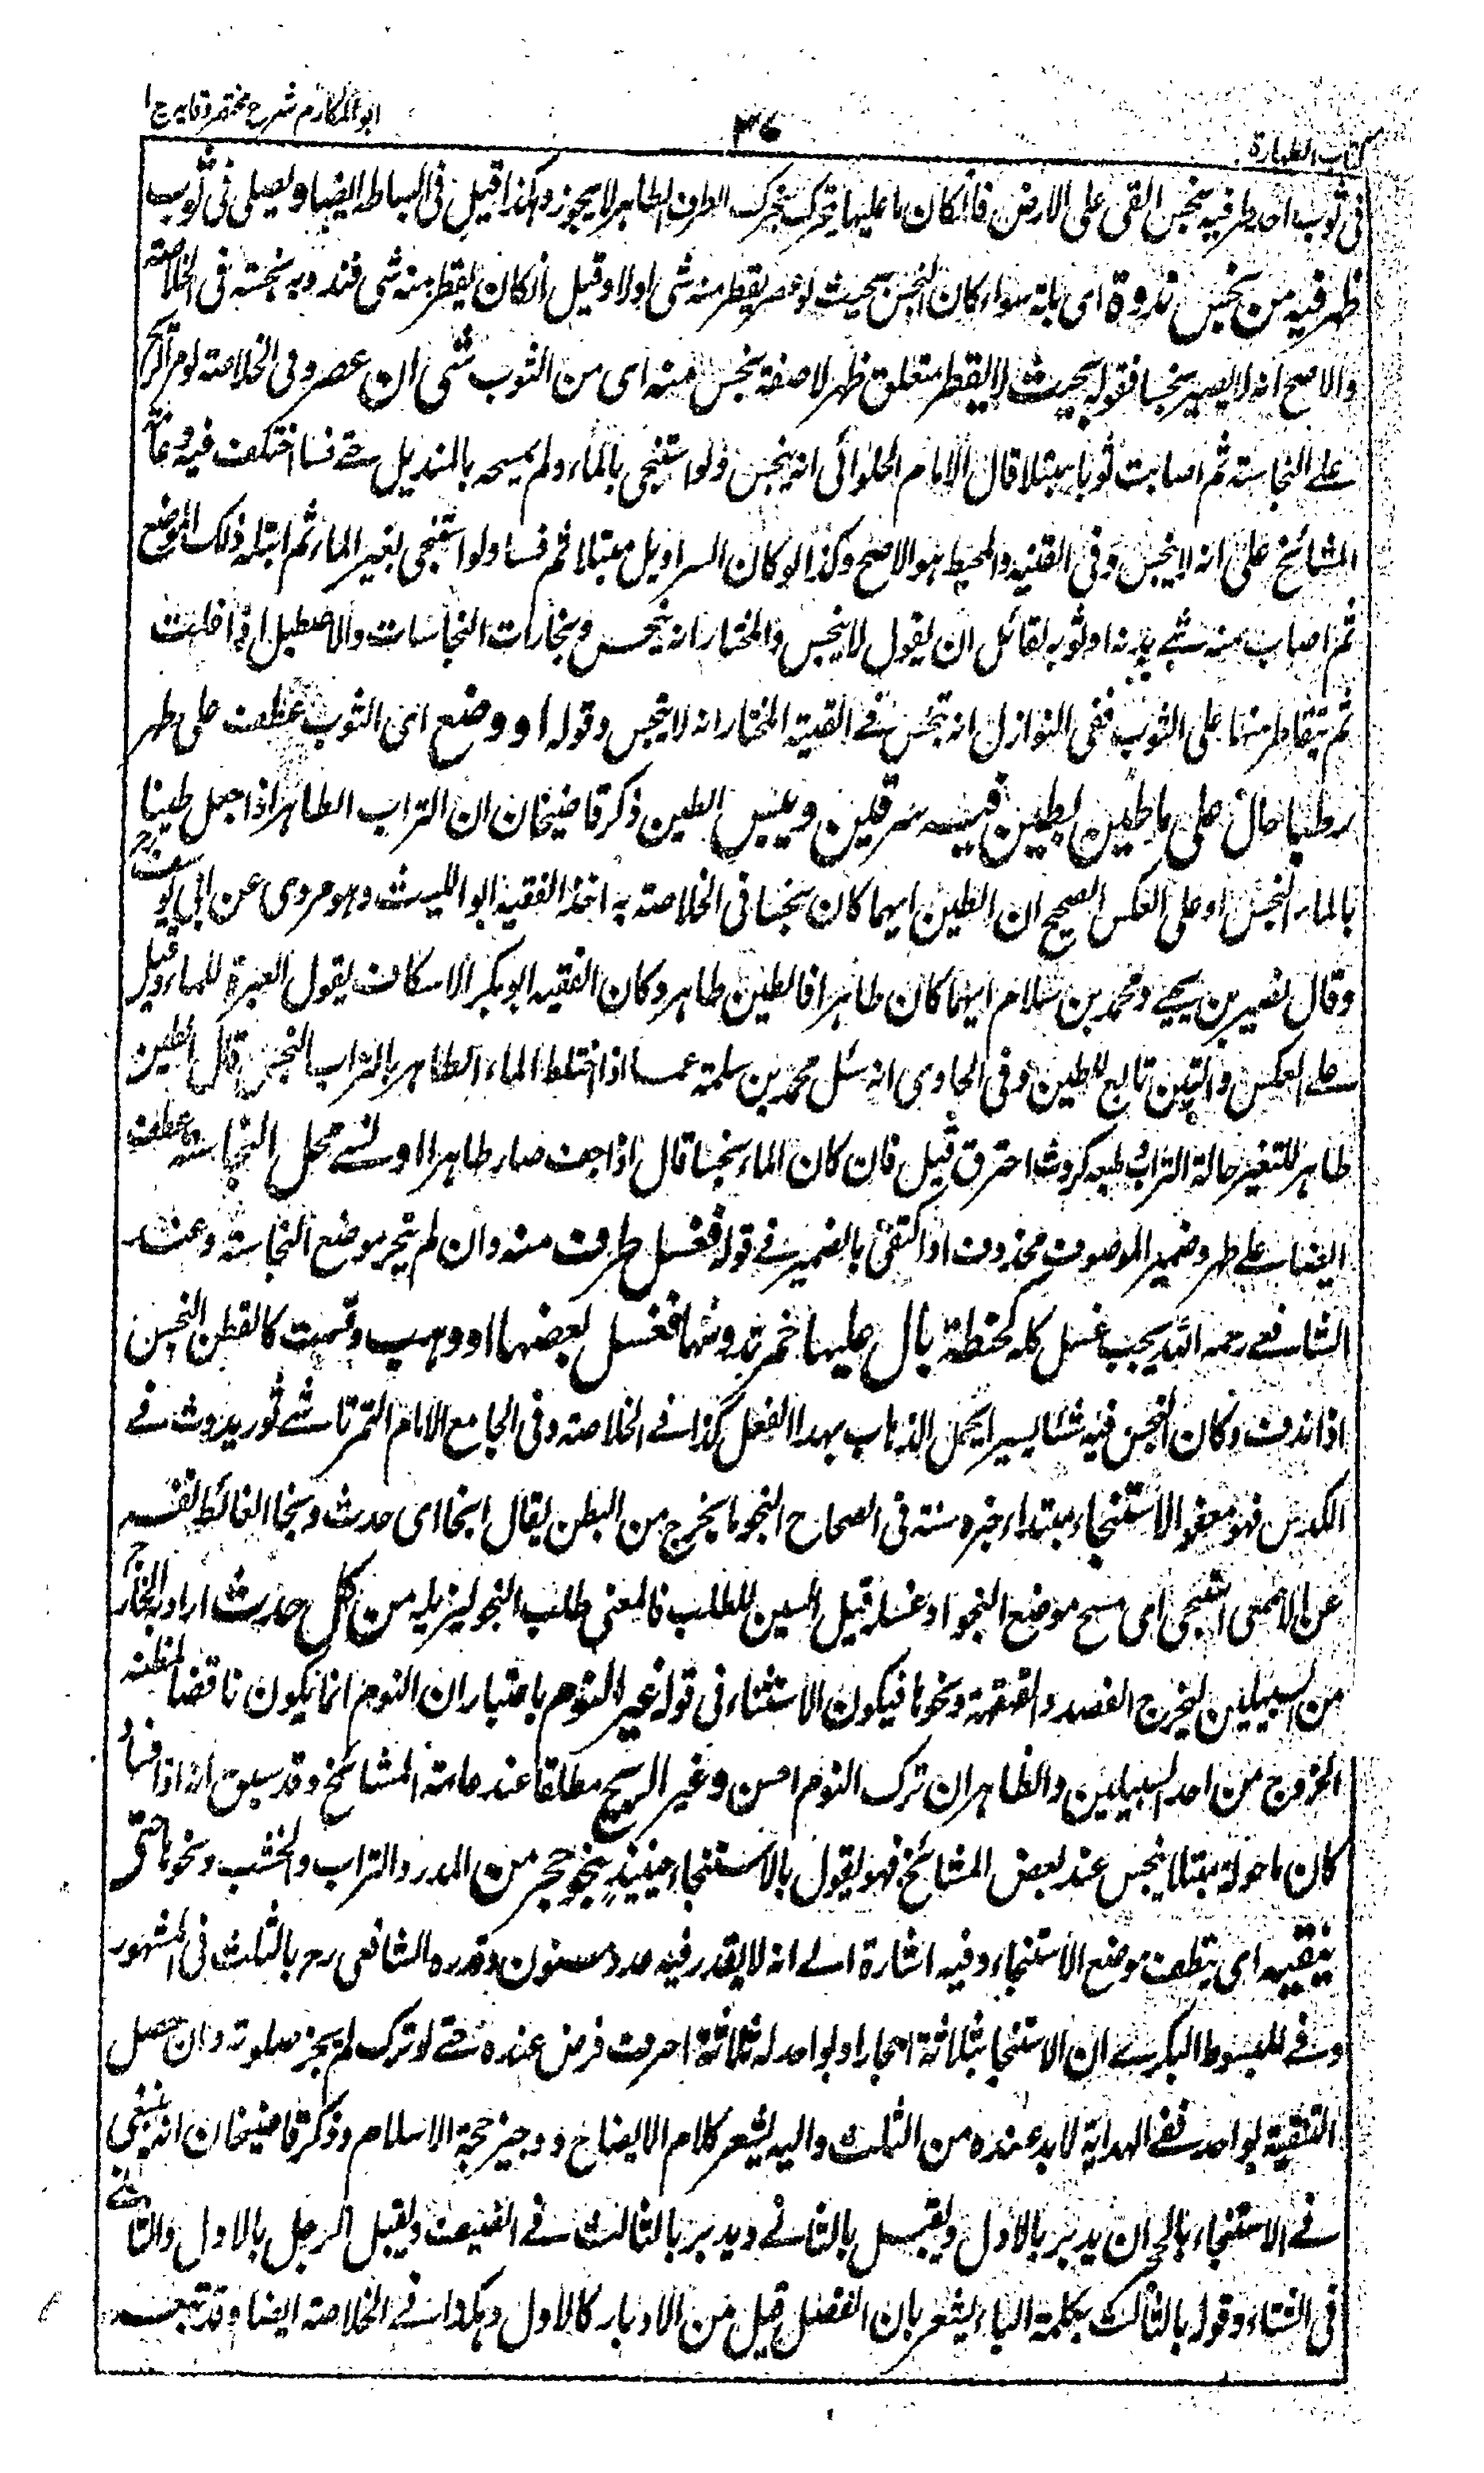 ابو المکارم شرح مختصر وقایه ج ۱
۳۷
کتاب الطهارة
فی ثوب احد طرفیه نجس القی علی الارض فان کان ما علیها یتحرک بتحرک الطرف الطاهر لا یجوز و هکذا قیل فی البساط ایضا و یصلی فی ثوب
ظهر فیه من نجس ندوة ای بلة سواء کان النجس بحیث لو عصر یقطر منه شی اولا و قیل ان کان یقطر منه شی فندوبه نجسة فی الخلاصة
والاصح انه لا یصیر نجسا فقوله بحیث لا یقطر متعلق ظهر لا صفة نجس منه ای من الثوب شی ان عصر و فی الخلاصة لو مر الریح
علی النجاسة ثم اصابت ثوبا مبتلا قال الامام الحلوائی انه ینجس ولو استنجی بالماء ولم یمسحه بالمندیل حتی فسا اختلفت فیه وعامة
المشائخ علی انه لا ینجس وفی القنیة والمحیط هو الاصح وکذا لو کان السراویل مبتلا ثم فسا ولو استنجی بغیر الماء ثم ابتل ذلک الموضع
ثم اصاب منه شی بدنه او ثوبه لقائل ان یقول لا ینجس والمختار انه ینجس وبخارات النجاسات والاصطبل اذا
ثم یتقاطر منها علی الثوب ففی النوازل انه نجس فی القنیة المختار انه لا ینجس وقوله او وضع ای الثوب عطف علی ظهر
رطبا حال علی ما طین بطین فیه سرقین و یبس الطین ذکر قاضیخان ان التراب الطاهر اذا جعل طینا
بالماء النجس او علی العکس الصحیح ان الطین ایهما کان نجسا فی الخلاصة به اخذ الفقیه ابو اللیث وهو مروی عن ابی یوسف رح
وقال نصیر بن یحیی ومحمد بن سلام ایهما کان طاهرا فالطین طاهر وکان الفقیه ابو بکر الاسکاف یقول العبرة للماء وقیل
علی العکس والتبن تابع للطین وفی الحاوی انه سئل محمد بن سلمة عما اذا اختلط الماء الطاهر بالتراب النجس قال الطین
طاهر للتغیر حالة التراب طبعه کروث احترق قیل فان کان الماء نجسا قال اذا جف صار طاهرا او نسی محل النجاسة عطف
ایضا علی طهر وضمیر الموصوف محذوف او اکتفی بالضمیر فی قوله فغسل طرف منه وان لم یتحر موضع النجاسة وعند
الشافعی رحمه الله یجب غسل کله کحنطة بال علیها حمر تدوسها فغسل بعضها او وهب وقسمت کالقطن النجس
اذا ندف وکان النجس فیه شئا یسیرا یحمل الذهاب بهذا الفعل کذا فی الخلاصة وفی الجامع الامام التمرتاشی ثور یروث فی
الکدس فهو معفو الاستنجاء مبتدأ وخبره سنة فی الصحاح النجو ما یخرج من البطن یقال انجا ای حدث ونجا الغائط نفسه
عن الاصمعی استنجی ای مسح موضع النجو او غسله قیل السین للطلب فالمعنی طلب النجو لیزیله من کل حدث اراد الخارج
من السبیلین لیخرج الفصد والقهقهة ونحوها فیکون الاستثناء فی قوله غیر النوم باعتبار ان النوم انما یکون ناقضا لمظنة
الخروج من احد السبیلین والظاهر ان ترک النوم احسن وغیر الریح مطلقا عند عامة المشائخ وقد سبق انه اذا فسا و
کان ما حوله مبتلا ینجس عند بعض المشائخ فهو یقول بالاستنجاء حینئذ بنحو حجر من المدر والتراب والخشب ونحوها حتی
ینقیه ای ینظف موضع الاستنجاء وفیه اشارة الی انه لا یقدر فیه عدد مسنون وقدره الشافعی رح بالثلث فی المشهور
وفی المبسوط البکری ان الاستنجا بثلاثة احجار او بواحد له ثلاثة احرف فرض عنده حتی لو ترک لم یجز صلوته وان حصل
التنقیة بواحد ففی الهدایة لا بد عنده من الثلث والیه یشعر کلام الایضاح و وجیز حجة الاسلام وذکر قاضیخان انه ینبغی
فی الاستنجاء بالحجر ان یدبر بالاول ویقبل بالثانی ویدبر بالثالث فی الصیف ویقبل الرجل بالاول والثانی
فی الشتاء وقوله بالثالث بکلمة الباء یشعر بان الفضل قیل من الادبار کالاول وهکذا فی الخلاصة ایضا وقد